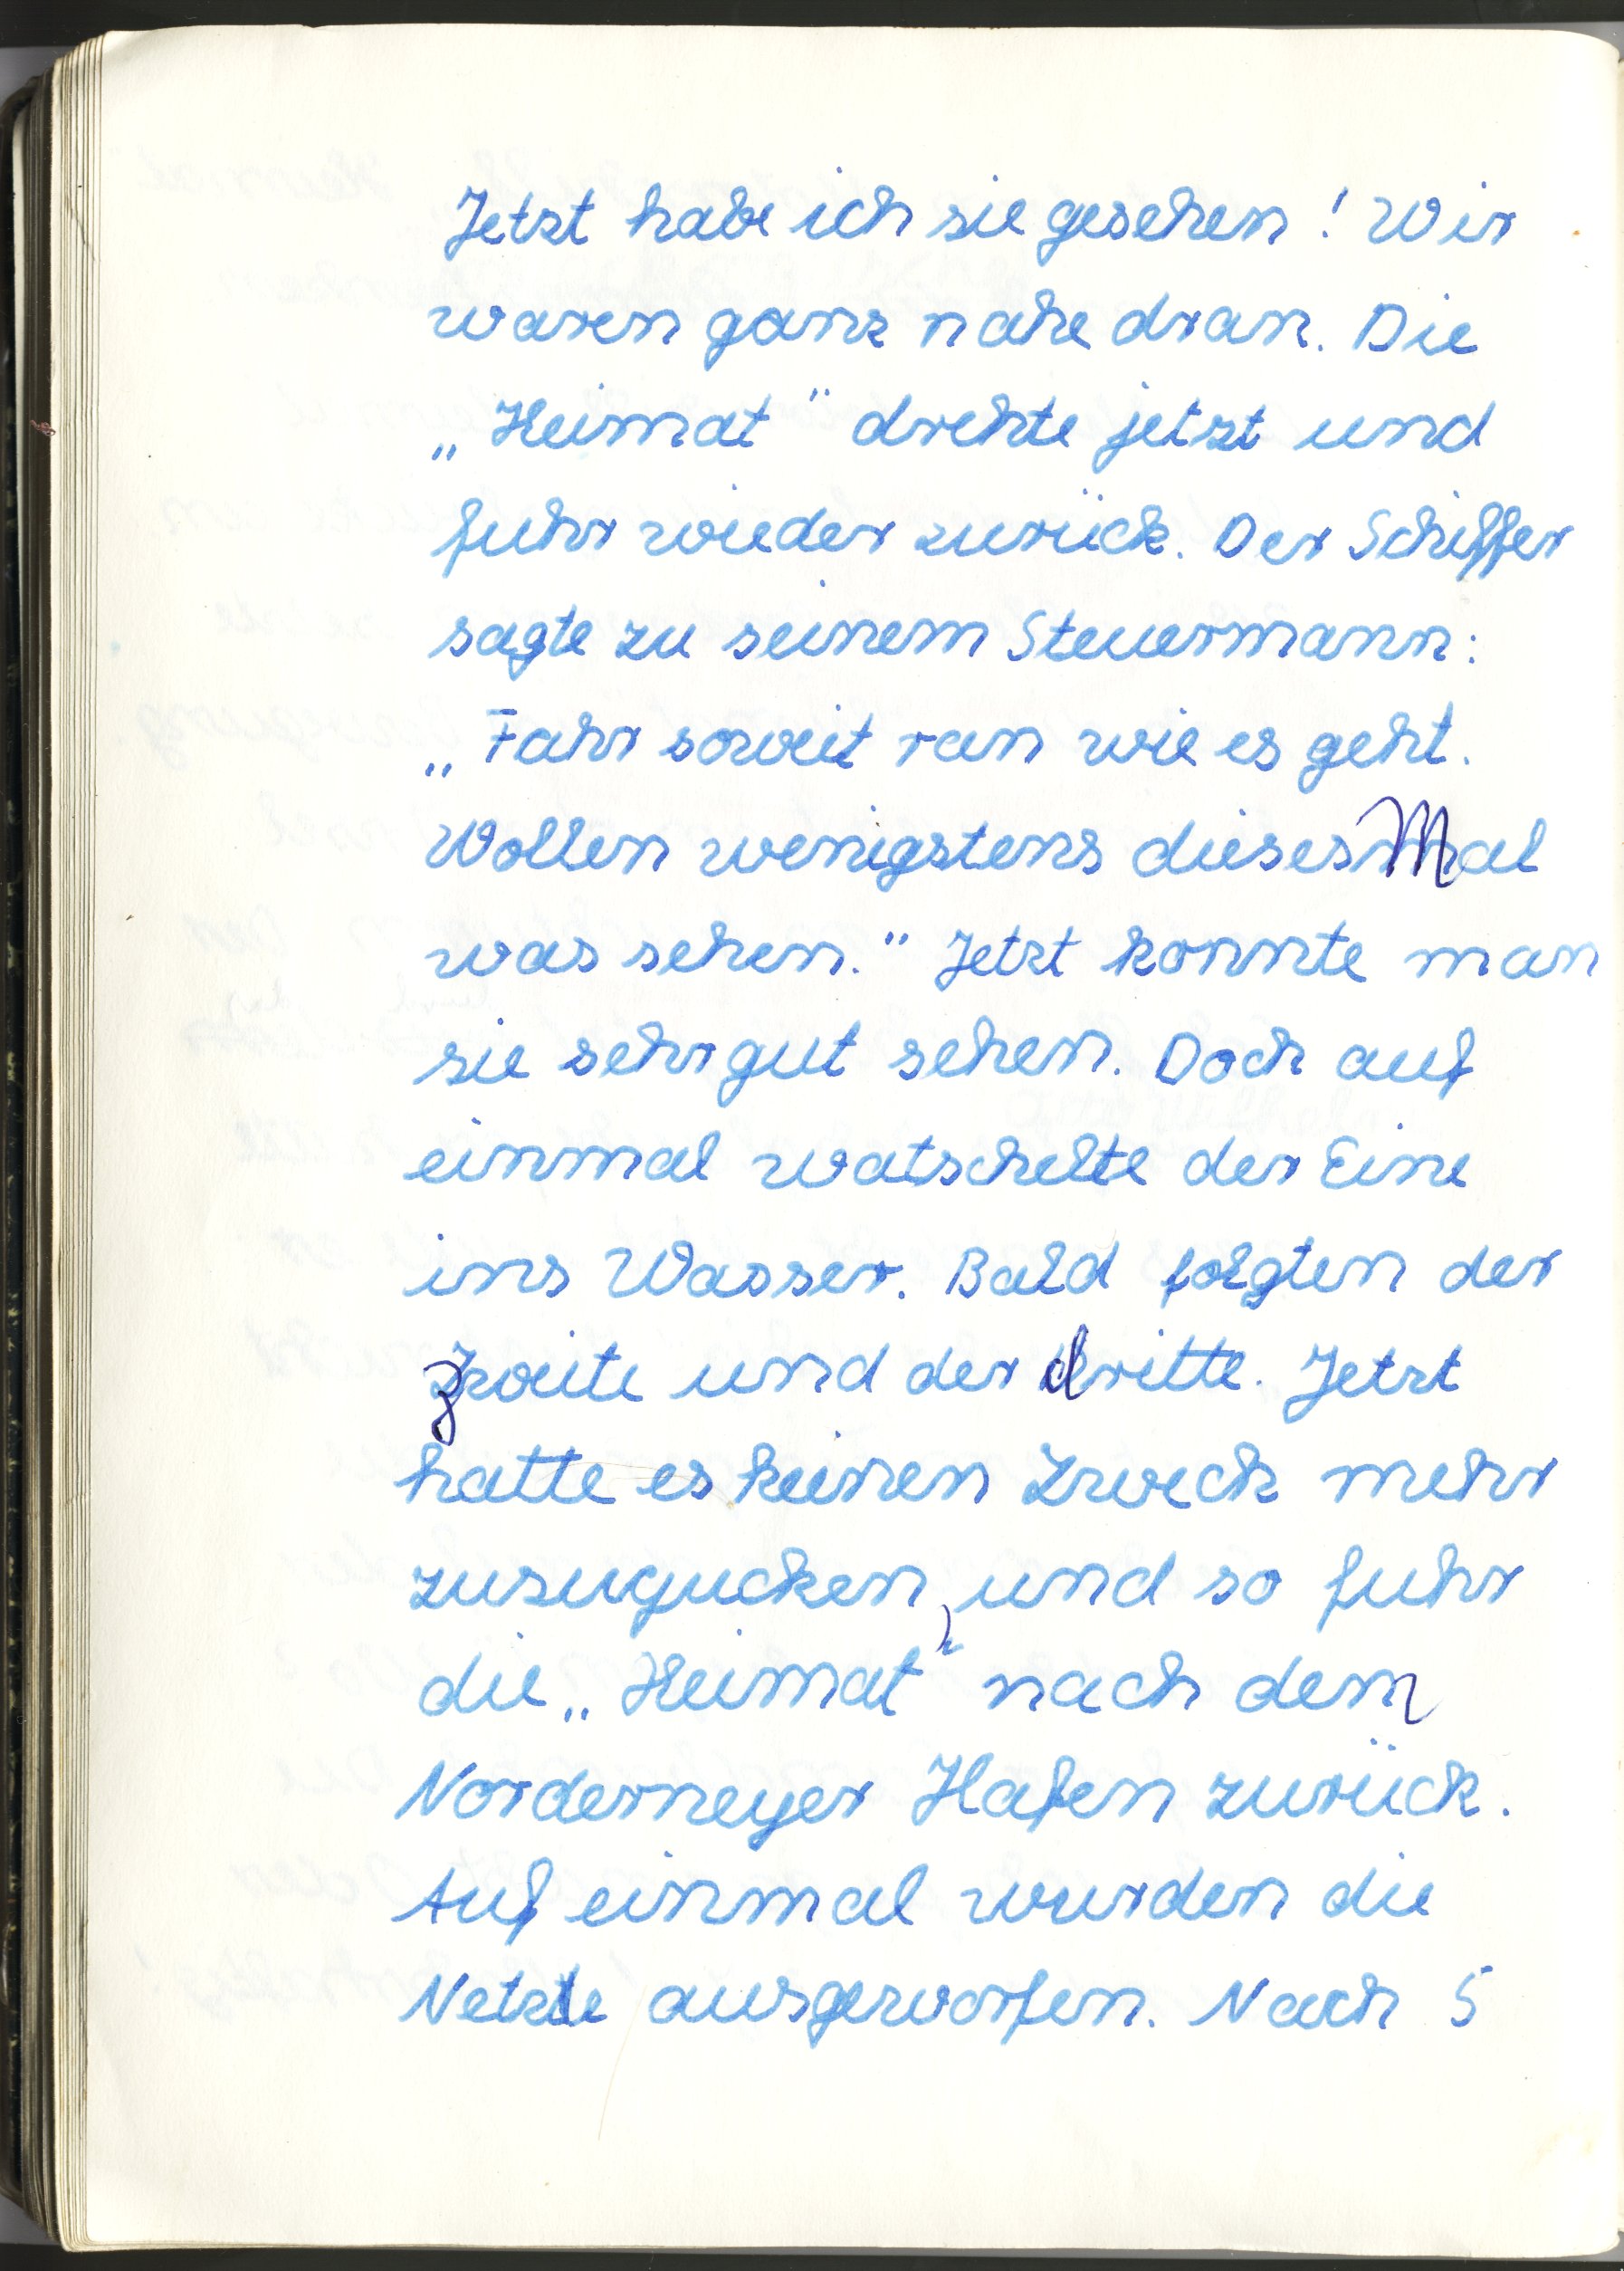 Jetzt habe ich sie gesehen! Wir
waren ganz nahe dran. Die
„Heimat" drehte jetzt und
fuhr wieder zurück. Der Schiffer
sagte zu seinem Steuermann:
„Fahr soweit ran wie es geht.
Wollen wenigstens dieses Mal
was sehen." Jetzt konnte man
sie sehr gut sehen. Doch auf
einmal watschelte der Eine
ins Wasser. Bald folgten der
zweite und der dritte. Jetzt
hatte es keinen Zweck mehr
zuzugucken, und so fuhr
die „Heimat" nach dem
Norderneyer Hafen zurück.
Auf einmal wurden die
Netze ausgeworfen. Nach 5